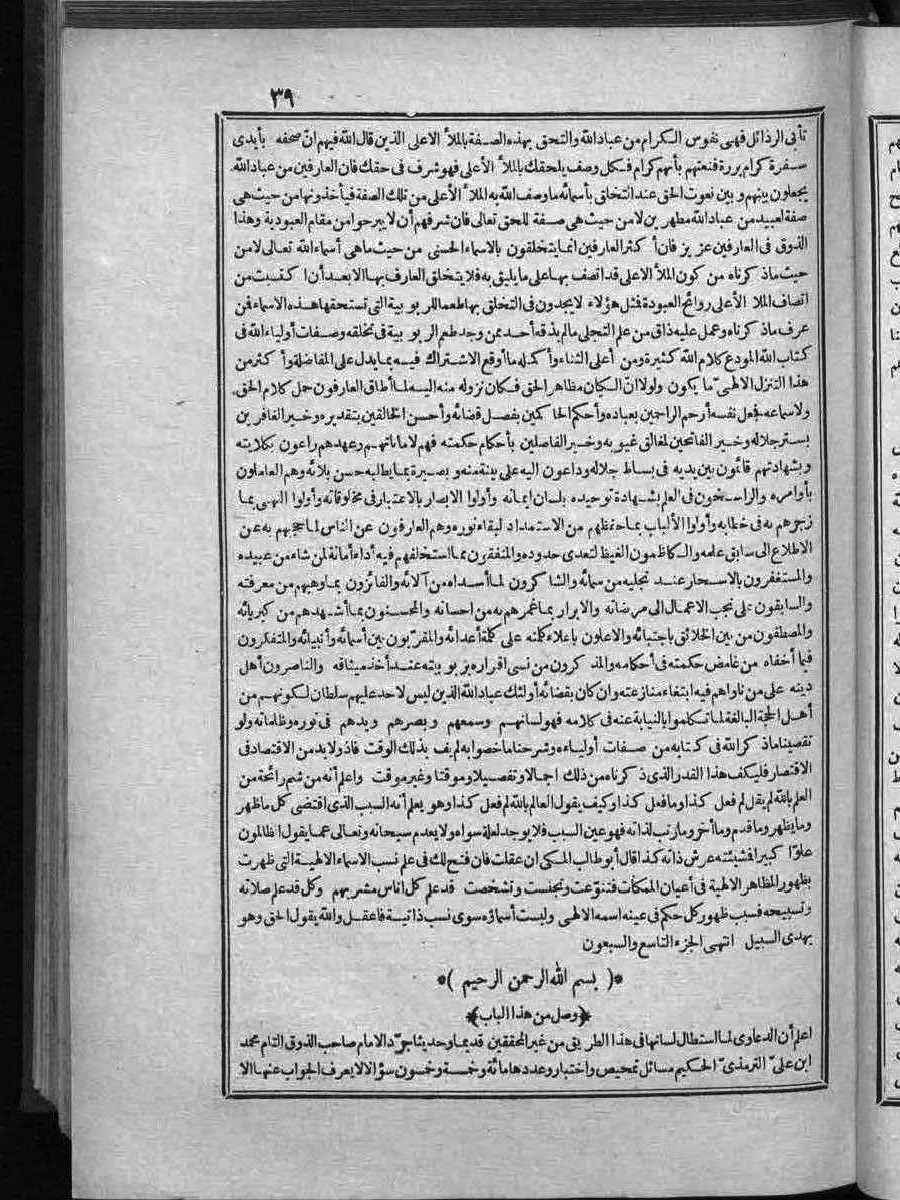 ٣٩
تأبى الرذائل فهى نفوس الكرام من عباد الله والتحق بهذه الصفة بالملأ الاعلى الذين قال الله فيهم ان صحفه بأيدى
سفرة كرام بررة فنعتهم بأنهم كرام فكل وصف يلحقك بالملأ الأعلى فهو شرف فى حقك فان العارفين من عباد الله
يجعلون بينهم وبين نعوت الحق عند التخلق بأسمائه ما وصف الله به الملأ الأعلى من تلك الصفة فيأخذونها من حيث هى
صفة لعبيد من عباد الله مطهرين لا من حيث هى صفة للحق تعالى فان شرفهم أن لا يبرحوا من مقام العبودية وهذا
الذوق فى العارفين عزيز فان أكثر العارفين انما يتخلقون بالاسماء الحسنى من حيث ما هى أسماء الله تعالى لا من
حيث ما ذكرناه من كون الملأ الاعلى قد اتصف بها على ما يليق به فلا يتخلق العارف بها الا بعد أن اكتسبت من
اتصاف الملأ الأعلى روائح العبودة فمثل هؤلاء لا يجدون فى التخلق بها طعما للربوبية التى تستحقها هذه الاسماء فمن
عرف ما ذكرناه وعمل عليه ذاق من علم التجلى ما لم يذقه أحد ممن وجد طعم الربوبية فى تخلقه وصفات أولياء الله فى
كتاب الله المودع كلام الله كثيرة ومن أعلى الثناء وأكمله ما أوقع الاشتراك فيه بما يدل على المفاضلة وأكثر من
هذا التنزل الالهىّ ما يكون ولولا انّ الكيان مظاهر الحق فكان نزوله منه اليه لما أطاق العارفون حمل كلام الحق
ولا سماعه فجعل نفسه أرحم الراحمين بعباده وأحكم الحاكمين بفصل قضائه وأحسن الخالقين بتقديره وخير الغافرين
بستر جلاله وخير الفاتحين لمغالق غيوبه وخير الفاصلين بأحكام حكمته فهم لاماناتهم وعهدهم راعون بكلايته
وبشهادتهم قائمون بين يديه فى بساط جلاله وداعون اليه على بينة منه وبصيرة بما يطلبه حسن بلائه وهم العاملون
بأوامره والراسخون فى العلم بشهادة توحيده بلسان ايمانه وأولوا الابصار بالاعتبار فى مخلوقاته وأولوا النهى بما
زجرهم به فى خطابه وأولوا الألباب بما حفظهم من الاستمداد لبقاء نوره وهم العارفون عن الناس لما حجبهم به عن
الاطلاع الى سابق علمه والكاظمون الغيظ لتعدى حدوده والمنفقون بما استخلفهم فيه أداء أمانة لمن شاء من عبيده
والمستغفرون بالاسحار عند تجليه من سمائه والشاكرون لما أسداه من آلائه والفائزون بما وهبهم من معرفته
والسابقون على نجب الاعمال الى مرضاته والابرار بما غمرهم به من احسانه والمحسنون بما أشهدهم من كبريائه
والمصطفون من بين الخلائق باجتبائه والاعلون باعلاء كلمته على كلمة أعدائه والمقرّبون بين أسمائه وأنبيائه والمتفكرون
فيما أخفاه من غامض حكمته فى أحكامه والمذكرون من نسى اقراره بربوبيته عند أخذ ميثاقه والناصرون أهل
دينه على من ناواهم فيه ابتغاء منازعته وان كان بقضائه أولئك عباد الله الذين ليس لاحد عليهم سلطان لكونهم من
أهل الحجة البالغة لما تكلموا بالنيابة عنه فى كلامه فهو لسانهم وسمعهم وبصرهم ويدهم فى نوره وظلماته ولو
تقصينا ما ذكر الله فى كتابه من صفات أوليائه وشرحنا ما خصوا به لم يف بذلك الوقت فاذ ولا بد من الاقتصاد فى
الاقتصار فليكف هذا القدر الذى ذكرناه من ذلك اجمالا وتفصيلا وموقتا وغير موقت واعلم أنه من شم رائحة من
العلم بالله لم يقل لم فعل كذا وما فعل كذا وكيف يقول العالم بالله لم فعل كذا وهو يعلم أنه السبب الذى اقتضى كل ما ظهر
وما يظهر وما قدم وما أخر وما رتب لذاته فهو عين السبب فلا يوجد لعلة سواه ولا يعدم سبحانه وتعالى عما يقول الظالمون
علوّا كبيرا فمشيئته عرش ذاته كذا قال أبو طالب المكى ان عقلت فان فتح لك فى علم نسب الاسماء الالهية التى ظهرت
بظهور المظاهر الالهية فى أعيان الممكنات فتنوّعت وتجنست وتشخصت قد علم كل اناس مشربهم وكل قد علم صلاته
وتسبيحه فسبب ظهور كل حكم فى عينه اسمه الالهى وليست أسماؤه سوى نسب ذاتية فاعقل والله يقول الحق وهو
يهدى السبيل انتهى الجزء التاسع والسبعون
*( بسم الله الرحمن الرحيم )*
﴿وصل من هذا الباب﴾
اعلم أن الدعاوى لما استطال لسانها فى هذا الطريق من غير المحققين قديما وحديثا جرّد الامام صاحب الذوق التام محمد
ابن علىّ الترمذىّ الحكيم مسائل تمحيص واختبار وعددها مائة وخمسة وخمسون سؤالا لا يعرف الجواب عنها الا